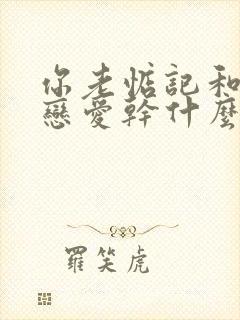 你老惦記和
戀愛幹什麼
羅笑虎